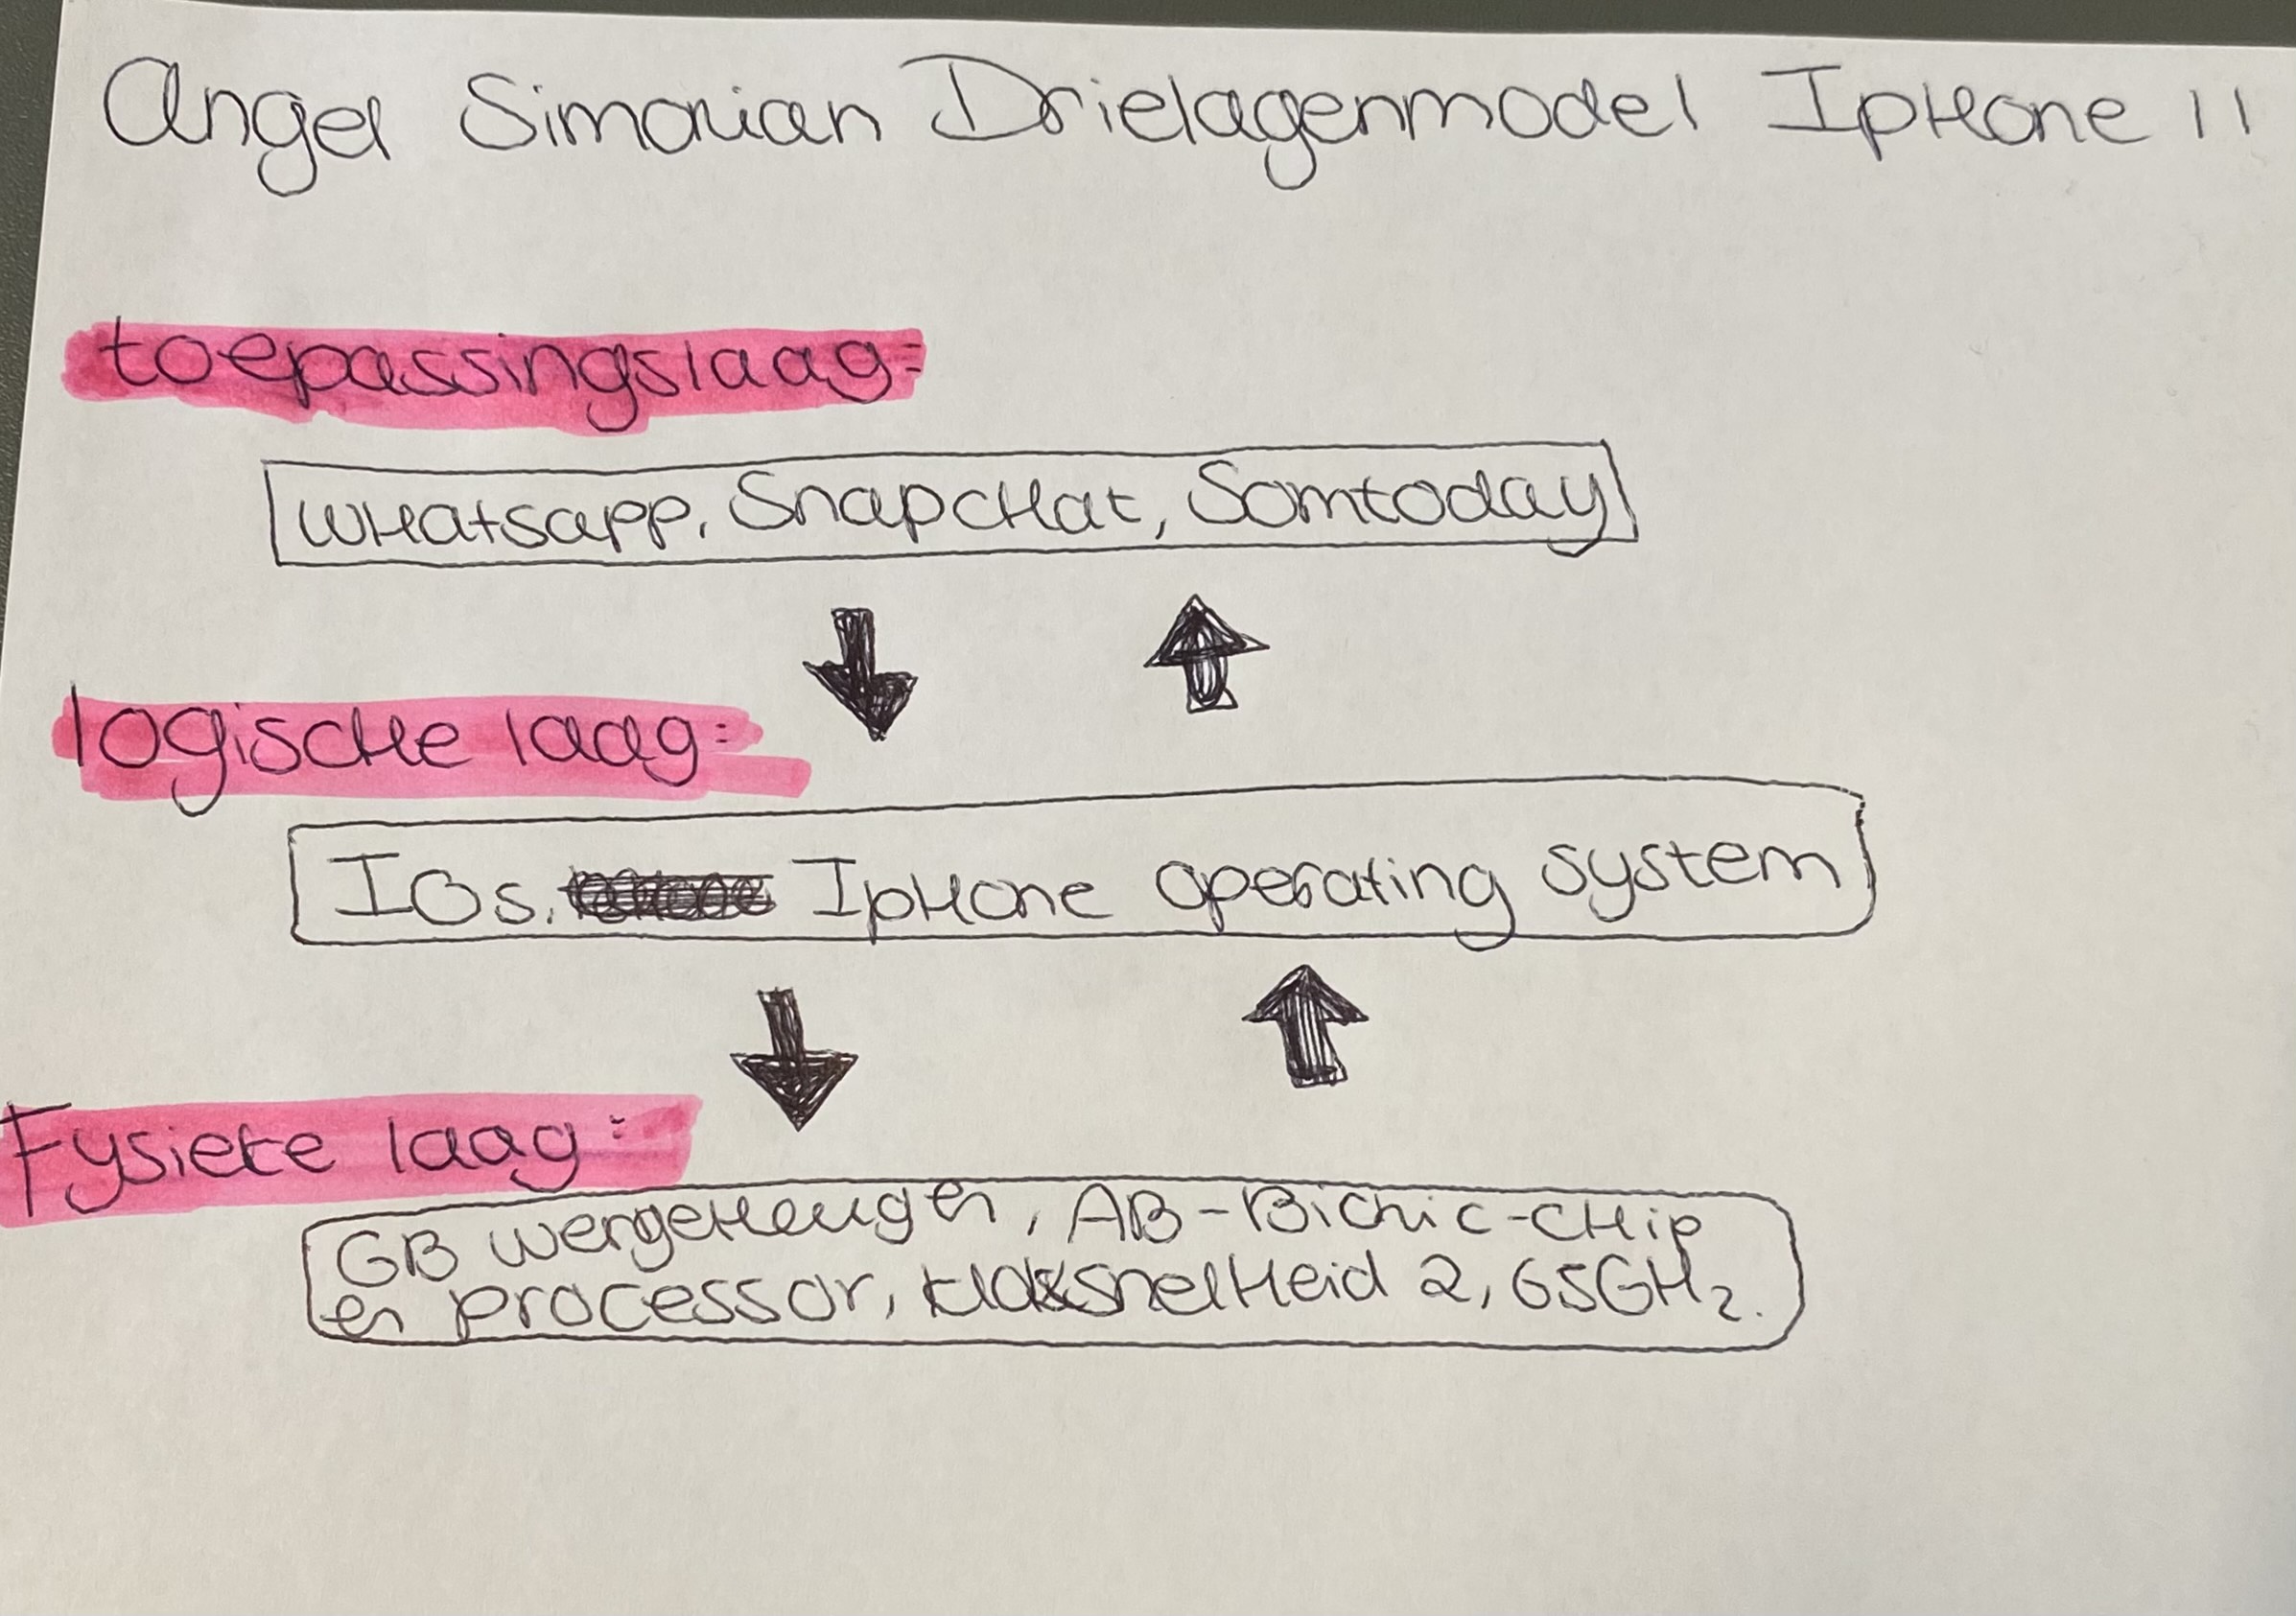 Angel Simonian Drielagenmodel IpHone 11
toepassingslaag:
WHatsapp, SnapcHat, Somtoday
logiscHe laag:
IOs. IpHone operating system
Fysieke laag:
GB wergeHeugen, AB-Bionic-CHip
en processor, kloksnelHeid 2,65GHz.